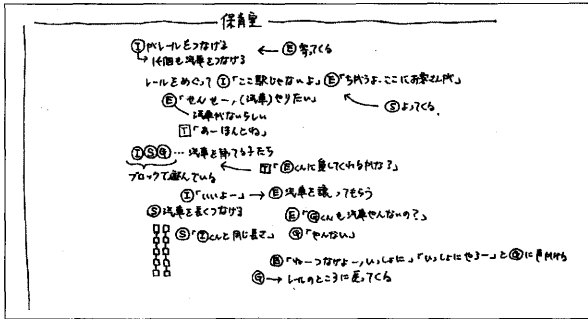 保育室
Ⓘがレールをつなげる ← Ⓔ寄ってくる
↳ 14個も汽車をつなげる
レールをめぐって Ⓘ「ここ駅じゃないよ」Ⓔ「ちがうよ、ここにお客さんが」
Ⓔ「せんせー、(汽車)やりたい」 Ⓢよってくる
汽車がないらしい
T「あーほんとね」
ⒾⓈⒼ…汽車を持てる子たち
ブロックで遊んでいる T「Ⓔくんに貸してくれるかな?」
Ⓘ「いいよー」→ Ⓔ汽車を譲ってもらう
Ⓢ汽車を長くつなげる Ⓔ「Ⓖくんも汽車やんないの?」
Ⓢ「Ⓘくんと同じ長さ」 Ⓖ「やんない」
Ⓔ「ねーつなげよー、いっしょに」「いっしょにやろー」とⒼに声かける
Ⓖ→レールのところに戻ってくる